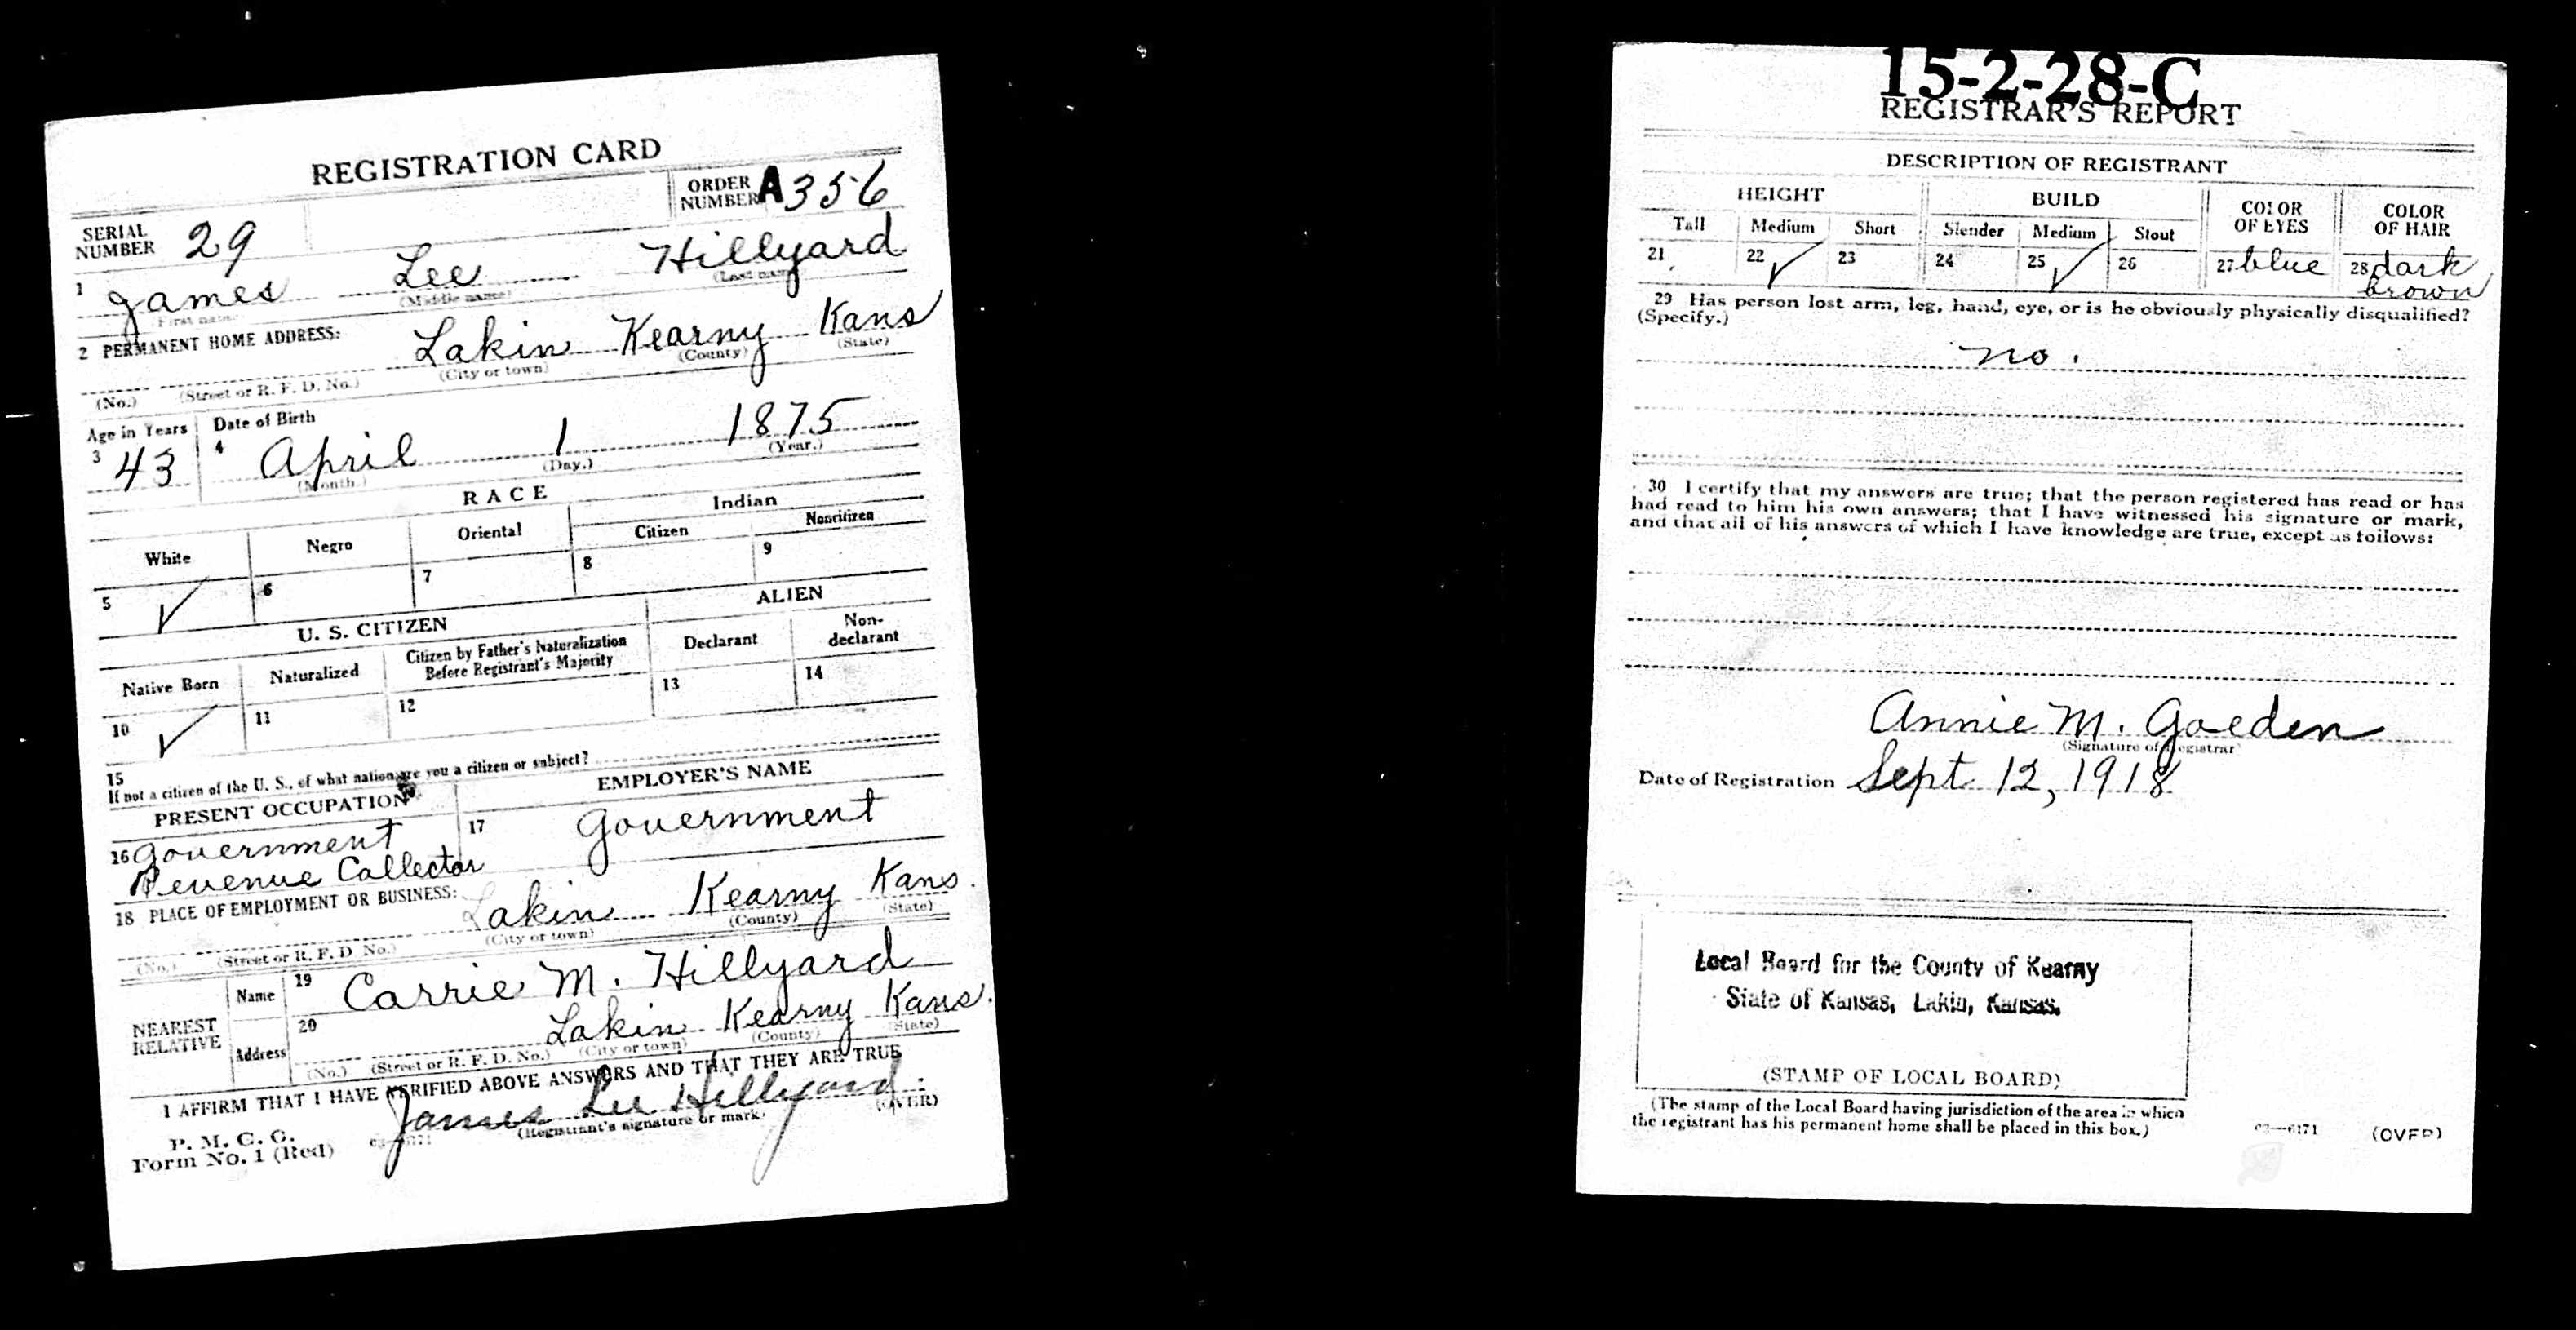 REGISTRATION CARD
SERIAL NUMBER 29 ORDER NUMBER A356
1 James Lee Hillyard
First name (Middle name) (Last name)
2 PERMANENT HOME ADDRESS:
Lakin Kearny Kans
(No.) (Street or R. F. D. No.) (City or town) (County) (State)
Age in Years Date of Birth
3 43 4 April 1 1875
(Month.) (Day.) (Year.)
RACE
White Negro Oriental Indian
Citizen Noncitizen
5 ✓ 6 7 8 9
U. S. CITIZEN ALIEN
Native Born Naturalized Citizen by Father's Naturalization Before Registrant's Majority Declarant Non-declarant
10 ✓ 11 12 13 14
15
If not a citizen of the U. S., of what nation are you a citizen or subject?
PRESENT OCCUPATION EMPLOYER'S NAME
16 Government 17 Government
Revenue Collector
18 PLACE OF EMPLOYMENT OR BUSINESS:
Lakin Kearny Kans.
(No.) (Street or R. F. D. No.) (City or town) (County) (State)
NEAREST RELATIVE
Name 19 Carrie M. Hillyard
Address 20 Lakin Kearny Kans.
(No.) (Street or R. F. D. No.) (City or town) (County) (State)
I AFFIRM THAT I HAVE VERIFIED ABOVE ANSWERS AND THAT THEY ARE TRUE
James Lee Hillyard
P. M. G. O.
Form No. 1 (Red) (Registrant's signature or mark) (OVER)
15-2-28-C
REGISTRAR'S REPORT
DESCRIPTION OF REGISTRANT
HEIGHT BUILD COLOR OF EYES COLOR OF HAIR
Tall Medium Short Slender Medium Stout
21 22 ✓ 23 24 25 ✓ 26 27 blue 28 dark brown
29 Has person lost arm, leg, hand, eye, or is he obviously physically disqualified?
(Specify.)
no.
30 I certify that my answers are true; that the person registered has read or has
had read to him his own answers; that I have witnessed his signature or mark,
and that all of his answers of which I have knowledge are true, except as follows:
Annie M. Goeden
(Signature of Registrar)
Date of Registration Sept 12, 1918
Local Board for the County of Kearny
State of Kansas, Lakin, Kansas.
(STAMP OF LOCAL BOARD)
(The stamp of the Local Board having jurisdiction of the area in which
the registrant has his permanent home shall be placed in this box.)
03—6171 (OVER)